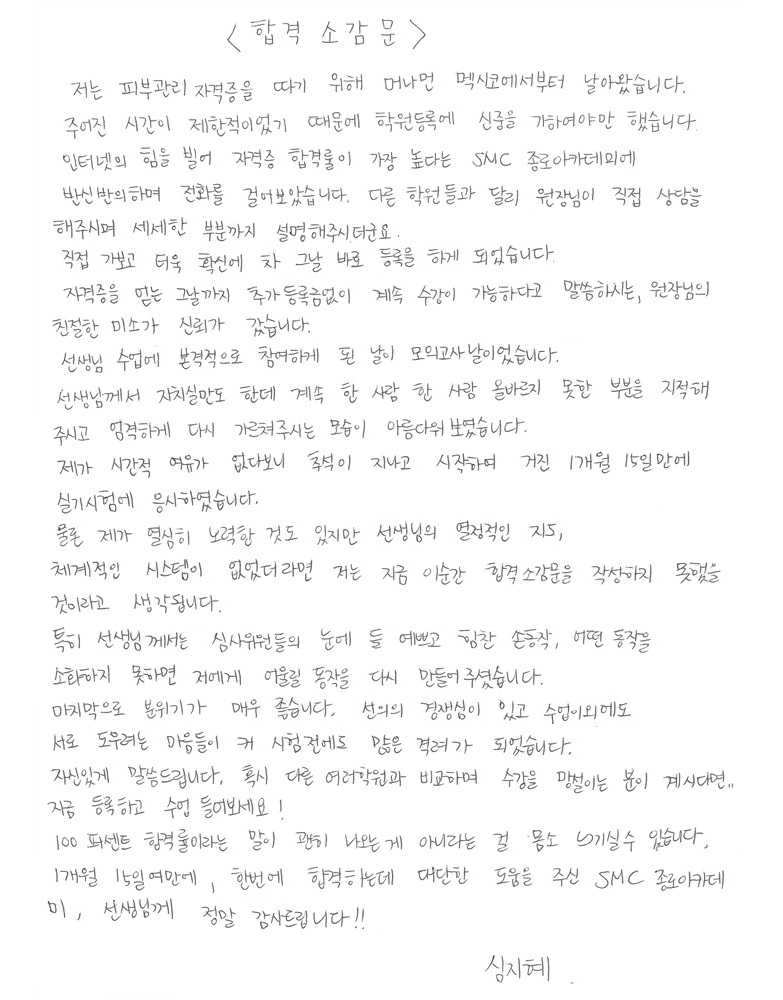 <합격 소감문>
저는 피부관리 자격증을 따기 위해 머나먼 멕시코에서부터 날아왔습니다.
주어진 시간이 제한적이었기 때문에 학원등록에 신중을 가하여야만 했습니다.
인터넷의 힘을 빌어 자격증 합격률이 가장 높다는 SMC 종로아카데미에
반신반의하며 전화를 걸어보았습니다. 다른 학원들과 달리 원장님이 직접 상담을
해주시며 세세한 부분까지 설명해주시더군요.
직접 가보고 더욱 확신에 차 그날 바로 등록을 하게 되었습니다.
자격증을 얻는 그날까지 추가등록금없이 계속 수강이 가능하다고 말씀하시는, 원장님의
친절한 미소가 신뢰가 갔습니다.
선생님 수업에 본격적으로 참여하게 된 날이 모의고사날이었습니다.
선생님께서 지치실만도 한데 계속 한 사람 한 사람 올바르지 못한 부분을 지적해
주시고 엄격하게 다시 가르쳐주시는 모습이 아름다워보였습니다.
제가 시간적 여유가 없다보니 추석이 지나고 시작하여 거진 1개월 15일만에
실기시험에 응시하였습니다.
물론 제가 열심히 노력한 것도 있지만 선생님의 열정적인 지도,
체계적인 시스템이 없었더라면 저는 지금 이순간 합격소감문을 작성하지 못했을
것이라고 생각됩니다.
특히 선생님께서는 심사위원들의 눈에 들 예쁘고 힘찬 손동작, 어떤 동작을
소화하지 못하면 저에게 어울릴 동작을 다시 만들어주셨습니다.
마지막으로 분위기가 매우 좋습니다. 선의의 경쟁심이 있고 수업이외에도
서로 도우려는 마음들이 커 시험전에도 많은 격려가 되었습니다.
자신있게 말씀드립니다. 혹시 다른 여러학원과 비교하며 수강을 망설이는 분이 계시다면..
지금 등록하고 수업 들어보세요!
100 퍼센트 합격률이라는 말이 괜히 나오는게 아니라는 걸 몸소 느끼실수 있습니다.
1개월 15일여만에, 한번에 합격하는데 대단한 도움을 주신 SMC 종로아카데
미, 선생님께 정말 감사드립니다!!
심지혜